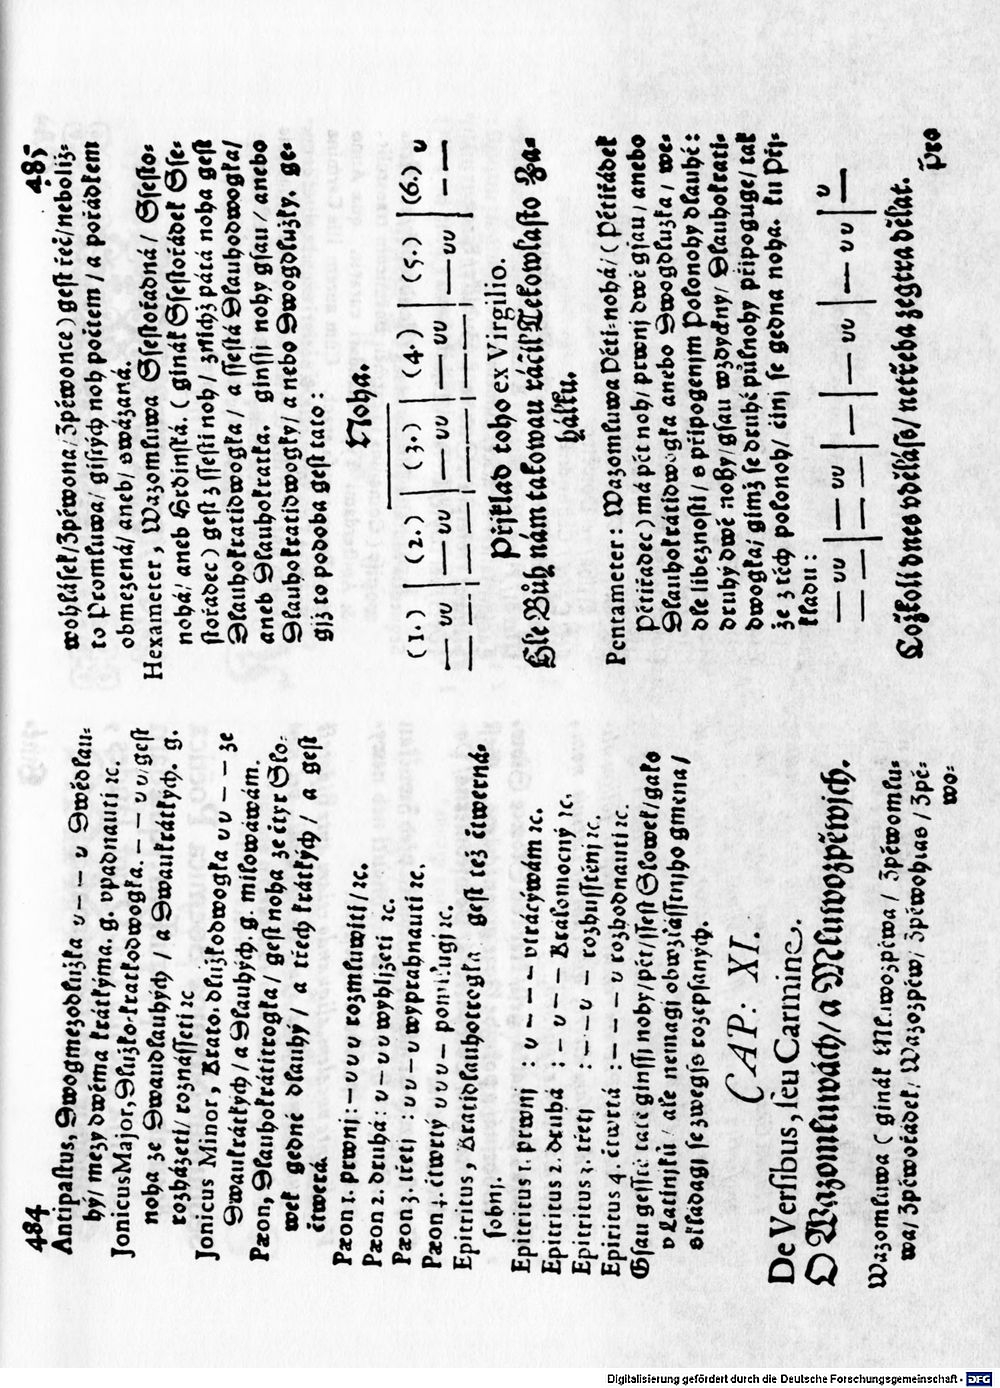 484
Antipastus, Dwogmezodlužka υ – – υ Dwědlau-
hý/ mezy dwěma krátkýma. g. vpadnauti ꝛc.
Jonicus Major, Dlužko-kratkodwogka. – – υ υ/ gest
noha ze Dwaudlauhých / a Dwaukrátkých. g.
rozházeti/ roznásseti ꝛc
Jonicus Minor, Krato-dlužkodwogka υ υ – – ze
Dwaukrátkých / a Dlauhých. g. milowáwám.
Pæon, Dlauhokrátitrogka / gest noha ze čtyr Slo-
wek gedné dlauhý / a třech krátkých / a gest
čtwerá.
Pæon 1. prwnj : – υ υ υ rozmluwiti / ꝛc.
Pæon 2. druhá : υ – υ υ wyhljzeti ꝛc.
Pæon 3. třetj : υ υ – υ wyprahnauti ꝛc.
Pæon 4. čtwrtý υ υ υ – ꝛc.
Epitritus, Kratidlauhotrogka gest též čtwerná-
sobnj.
Epitritus 1. prwnj : υ – – – vtrácýwám ꝛc.
Epitritus 2. druhá : – υ – – Kralomocný ꝛc.
Epitritus 3. třetj : – – υ – rozhussťěnj ꝛc.
Epitritus 4. čtwrtá : – – – υ rozbodnauti ꝛc.
Gsau gesstě také ginssj noby/ pět/ ssest Slowek/ gako
v Latinjků / ale nemagj obwzlásstnjho gmena /
skládagj se zwegss rozepsaných.
CAP: XI.
De Versibus, seu Carmine.
O Wazomluwách/ a Mluwozpěwjch.
Wazomluwa ( gináč Mluwozpěwa / Zpěwomlu-
wa/ Zpěwořádek/ Wazozpěw/ Zpěwohlas / Zpě-
wo-
485
wohlásek/ Zpěwona/ Zpěwonce) gest řeč/ neboliž-
to Promluwa/ gisých noh počtem / a pořádkem
obmezená/ aneb/ swázaná.
Hexameter, Wazomluwa Ssestořadná / Ssesto-
nohá/ aneb Hrdinská. ( gináč Ssestořádek Sse-
stořádec) gest z ssesti noh / z nichž pátá noha gest
Dlauhokratidwogka / a ssestá Dlauhodwogka/
aneb Dlauhokratka. ginssj nohy gsau / anebo
Dlauhokratidwogky/ a nebo Dwogdlužky. ge-
gjž to podoba gest tato :
Noha.
(1.) | (2.) | (3.) | (4.) | (5.) | (6.) υ
— υυ | — υυ | — υυ | — υυ | — υυ | — —
— — | — — | — — | — — |
Přjklad toho ex Virgilio.
Hle Bůh nám takowau ráčil Tekowlasto Za-
hálku.
Pentameter : Wazomluwa Pěti-nohá/ ( Pětřádek
Pětiřadec) má pět noh/ prwnj dwě gsau / anebo
Dlauhokrátidwogka anebo Dwogdlužka / we-
dle libeznosti / s připogenjm Polonohy dlauhé :
druhý dwě nohy/ gsau wždycky/ Dlauhokrati-
dwogka/ gimž se druhé půlnohy připoguge/ tak
že z těch polonoh/ činj se gedna noha. ku Přj-
kladu :
— υυ | — υυ | — | — υυ | — υυ | υ
— — | — — | —
Cožkoli dnes vděláss/ netřeba zegtra dělat.
Pro
Digitalisierung gefördert durch die Deutsche Forschungsgemeinschaft - DFG